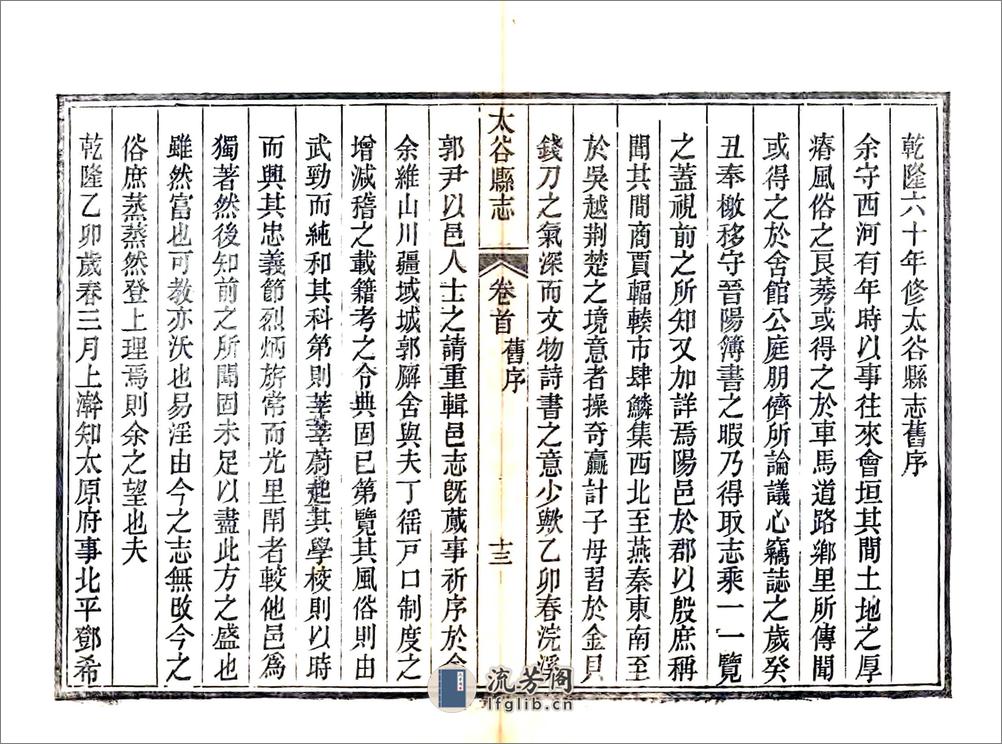 乾隆六十年修太谷縣志舊序
余守西河有年時以事往來會垣其間土地之厚
瘠風俗之良莠或得之於車馬道路鄉里所傳聞
或得之於舍館公庭朋儕所論議心竊誌之歲癸
丑奉檄移守晉陽簿書之暇乃得取志乘一一覽
之蓋視前之所知又加詳焉陽邑於郡以殷庶稱
聞其間商賈輻輳市肆鱗集西北至燕秦東南至
於吳越荆楚之境意者操奇贏計子母習於金貝
錢刀之氣深而文物詩書之意少歟乙卯春浣溪
太谷縣志
卷首
舊序
十三
郭尹以邑人士之請重輯邑志旣蕆事祈序於余
余維山川疆域城郭廨舍與夫丁徭戸口制度之
增減稽之載籍考之令典固已第覽其風俗則由
武勁而純和其科第則莘莘蔚起其學校則以時
而興其忠義節烈炳旂常而光里閈者較他邑爲
獨著然後知前之所聞固未足以盡此方之盛也
雖然富也可教亦沃也易淫由今之志無斁今之
俗庶蒸蒸然登上理焉則余之望也夫
乾隆乙卯歲春三月上澣知太原府事北平鄧希
流芳阁
lfglib.cn